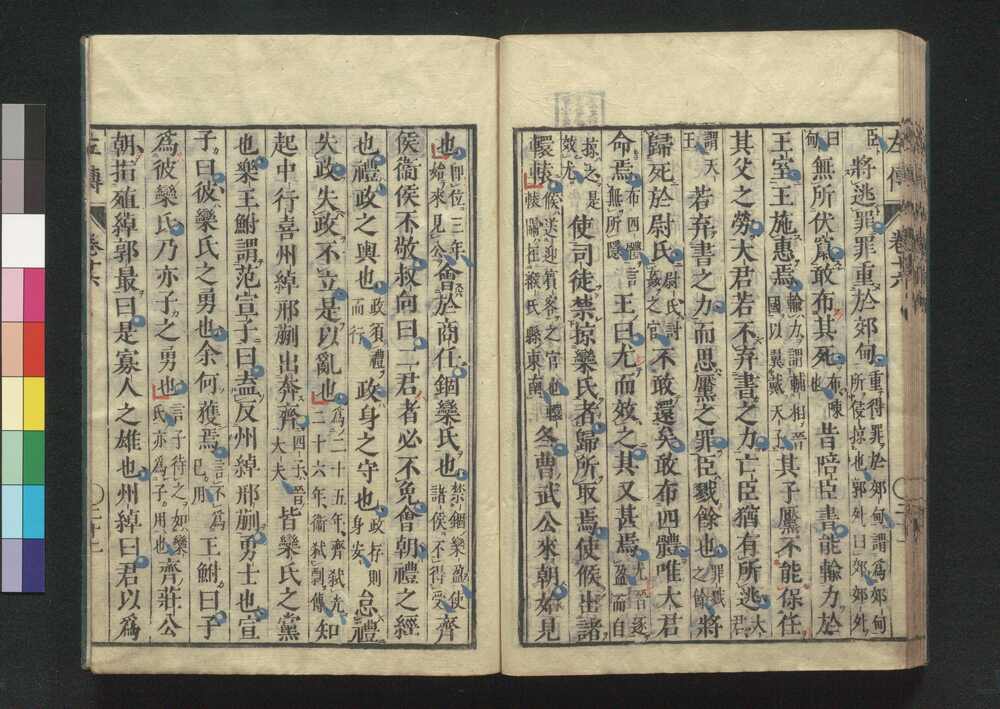 左傳 卷十六
臣將逃罪罪重於郊甸重得罪於郊甸謂為郊甸所侵掠也郭外曰郊郊外
曰甸無所伏竄敢布其死布陳也昔陪臣書能輸力於
王室王施惠焉輸力謂輔相晉國以翼戴天子其子黶不能保任
其父之勞大君若不弃書之力亡臣猶有所逃大君
謂天王若弃書之力而思黶之罪臣戮餘也罪戮之餘將
歸死於尉氏尉氏討姦之官不敢還矣敢布四體唯大君
命焉布四體言無所隱王曰尤而效之其又甚焉尤晉逐盈而自
掠之是效尤使司徒禁掠欒氏者歸所取焉使候出諸
轘轅候送迎賓客之官也轘轅關在緱氏縣東南冬曹武公來朝始見
也即位三年始來見公會於商任錮欒氏也禁錮欒盈使諸侯不得受齊
侯衛侯不敬叔向曰二君者必不免會朝禮之經
也禮政之輿也政須禮而行政身之守也政存則身安怠禮
失政失政不立是以亂也為二十五年齊弒光二十六年衛弒剽傳知
起中行喜州綽邢蒯出奔齊四子晉大夫皆欒氏之黨
也樂王鮒謂范宣子曰盍反州綽邢蒯勇士也宣
子曰彼欒氏之勇也余何獲焉言不為己用王鮒曰子
為彼欒氏乃亦子之勇也言子待之如欒氏亦為子用也齊莊公
朝指殖綽郭最曰是寡人之雄也州綽曰君以為
左傳 卷十六